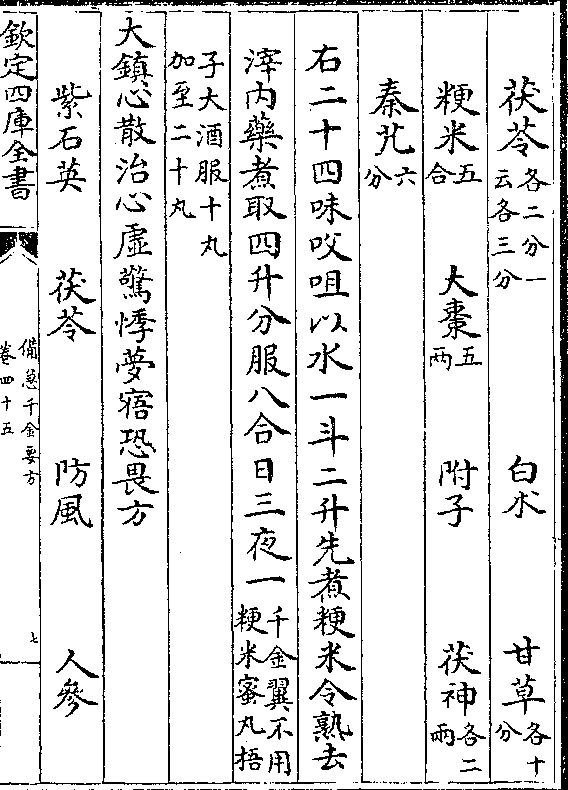 茯苓各二分一云各三分 白朮 甘草各十分
粳米五合 大棗五兩 附子 茯神各二兩
秦艽六分
右二十四味㕮咀以水一斗二升先煮粳米令熟去
滓内藥煮取四升分服八合日三夜一千金翼不用粳米蜜丸梧
子大酒服十丸加至二十丸
大鎮心散治心虛驚悸夢寤恐畏方
紫石英 茯苓 防風 人參
欽定四庫全書
備急千金要方
卷四十五
七